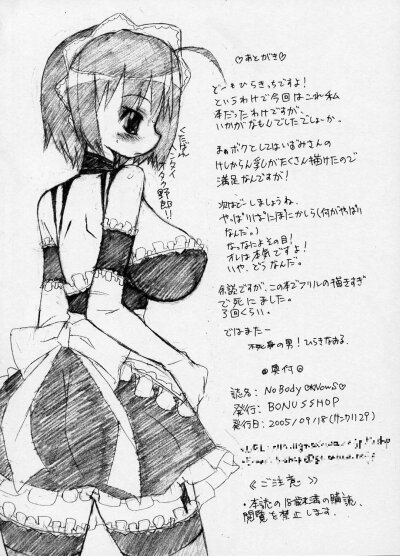 ♡あとがき♡
どーもひらきっちですよ!
というわけで今回はこれ私
本だったわけですが、
いかがなもんでしたでしょーか。
まぁボクとしてはいるみさんの
けしからん乳がたくさん描けたので
満足なんですが!
次はどーしましょうね、
やっぱりぱにぽにかしら(何がやっぱり
なんだ。)
なっなによその目!
オレは本気ですよ!
いや、どうなんだ。
余談ですが、この本でフリルの描きすぎ
で死にました。
3回くらい。
ではまたー
不死身の男!ひらきなおる。
ヘンタイ
オタク野郎!!
◎奥付◎
誌名: NoBody Nows
発行: BONUSSHOP
発行日: 2005/09/18(サンクリ29)
《ご注意》
・本誌の18歳未満の購読、
閲覧を禁止します。